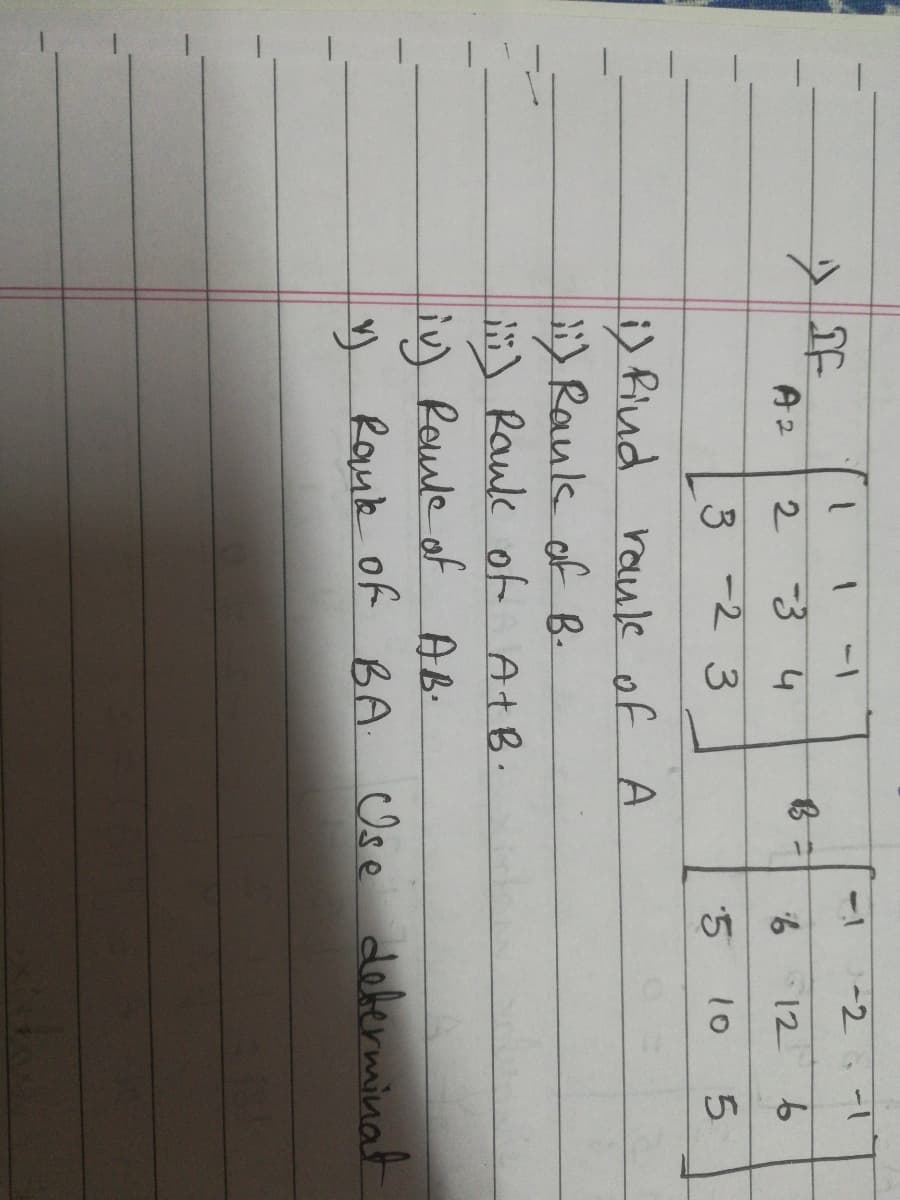 1) If
A= [ 1 1 -1
2 -3 4
3 -2 3 ]
B = [ -1 -2 -1
6 12 6
5 10 5 ]
i) Find rank of A
ii) Rank of B.
iii) Rank of A+B.
iv) Rank of AB.
v) Rank of BA. Use determinat